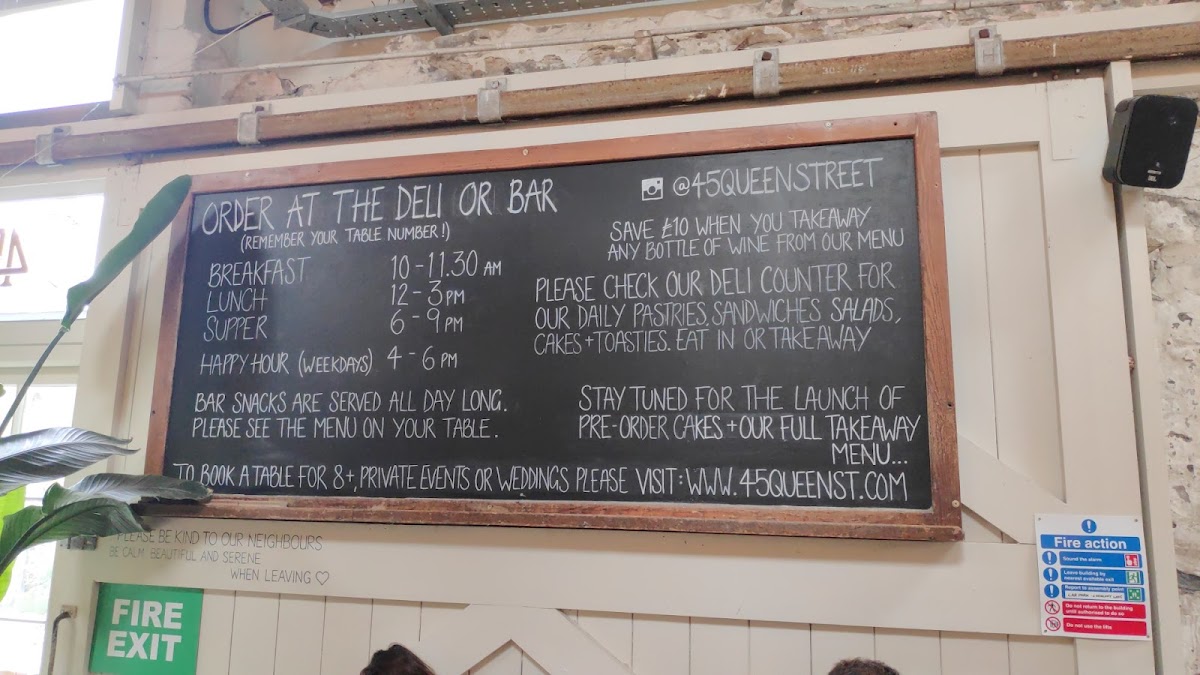 ORDER AT THE DELI OR BAR
(REMEMBER YOUR TABLE NUMBER!)
BREAKFAST 10 - 11.30 AM
LUNCH 12 - 3 PM
SUPPER 6 - 9 PM
HAPPY HOUR (WEEKDAYS) 4 - 6 PM
BAR SNACKS ARE SERVED ALL DAY LONG.
PLEASE SEE THE MENU ON YOUR TABLE.
@45QUEENSTREET
SAVE £10 WHEN YOU TAKEAWAY
ANY BOTTLE OF WINE FROM OUR MENU
PLEASE CHECK OUR DELI COUNTER FOR
OUR DAILY PASTRIES, SANDWICHES SALADS,
CAKES + TOASTIES. EAT IN OR TAKEAWAY
STAY TUNED FOR THE LAUNCH OF
PRE-ORDER CAKES + OUR FULL TAKEAWAY
MENU...
TO BOOK A TABLE FOR 8+, PRIVATE EVENTS OR WEDDINGS PLEASE VISIT: WWW.45QUEENST.COM
PLEASE BE KIND TO OUR NEIGHBOURS
BE CALM, BEAUTIFUL AND SERENE
WHEN LEAVING ♡
FIRE
EXIT
Fire action
Sound the alarm
Leave building by
nearest available exit
Report to assembly point
Do not return to the building
until authorised to do so
Do not use the lifts
JBL